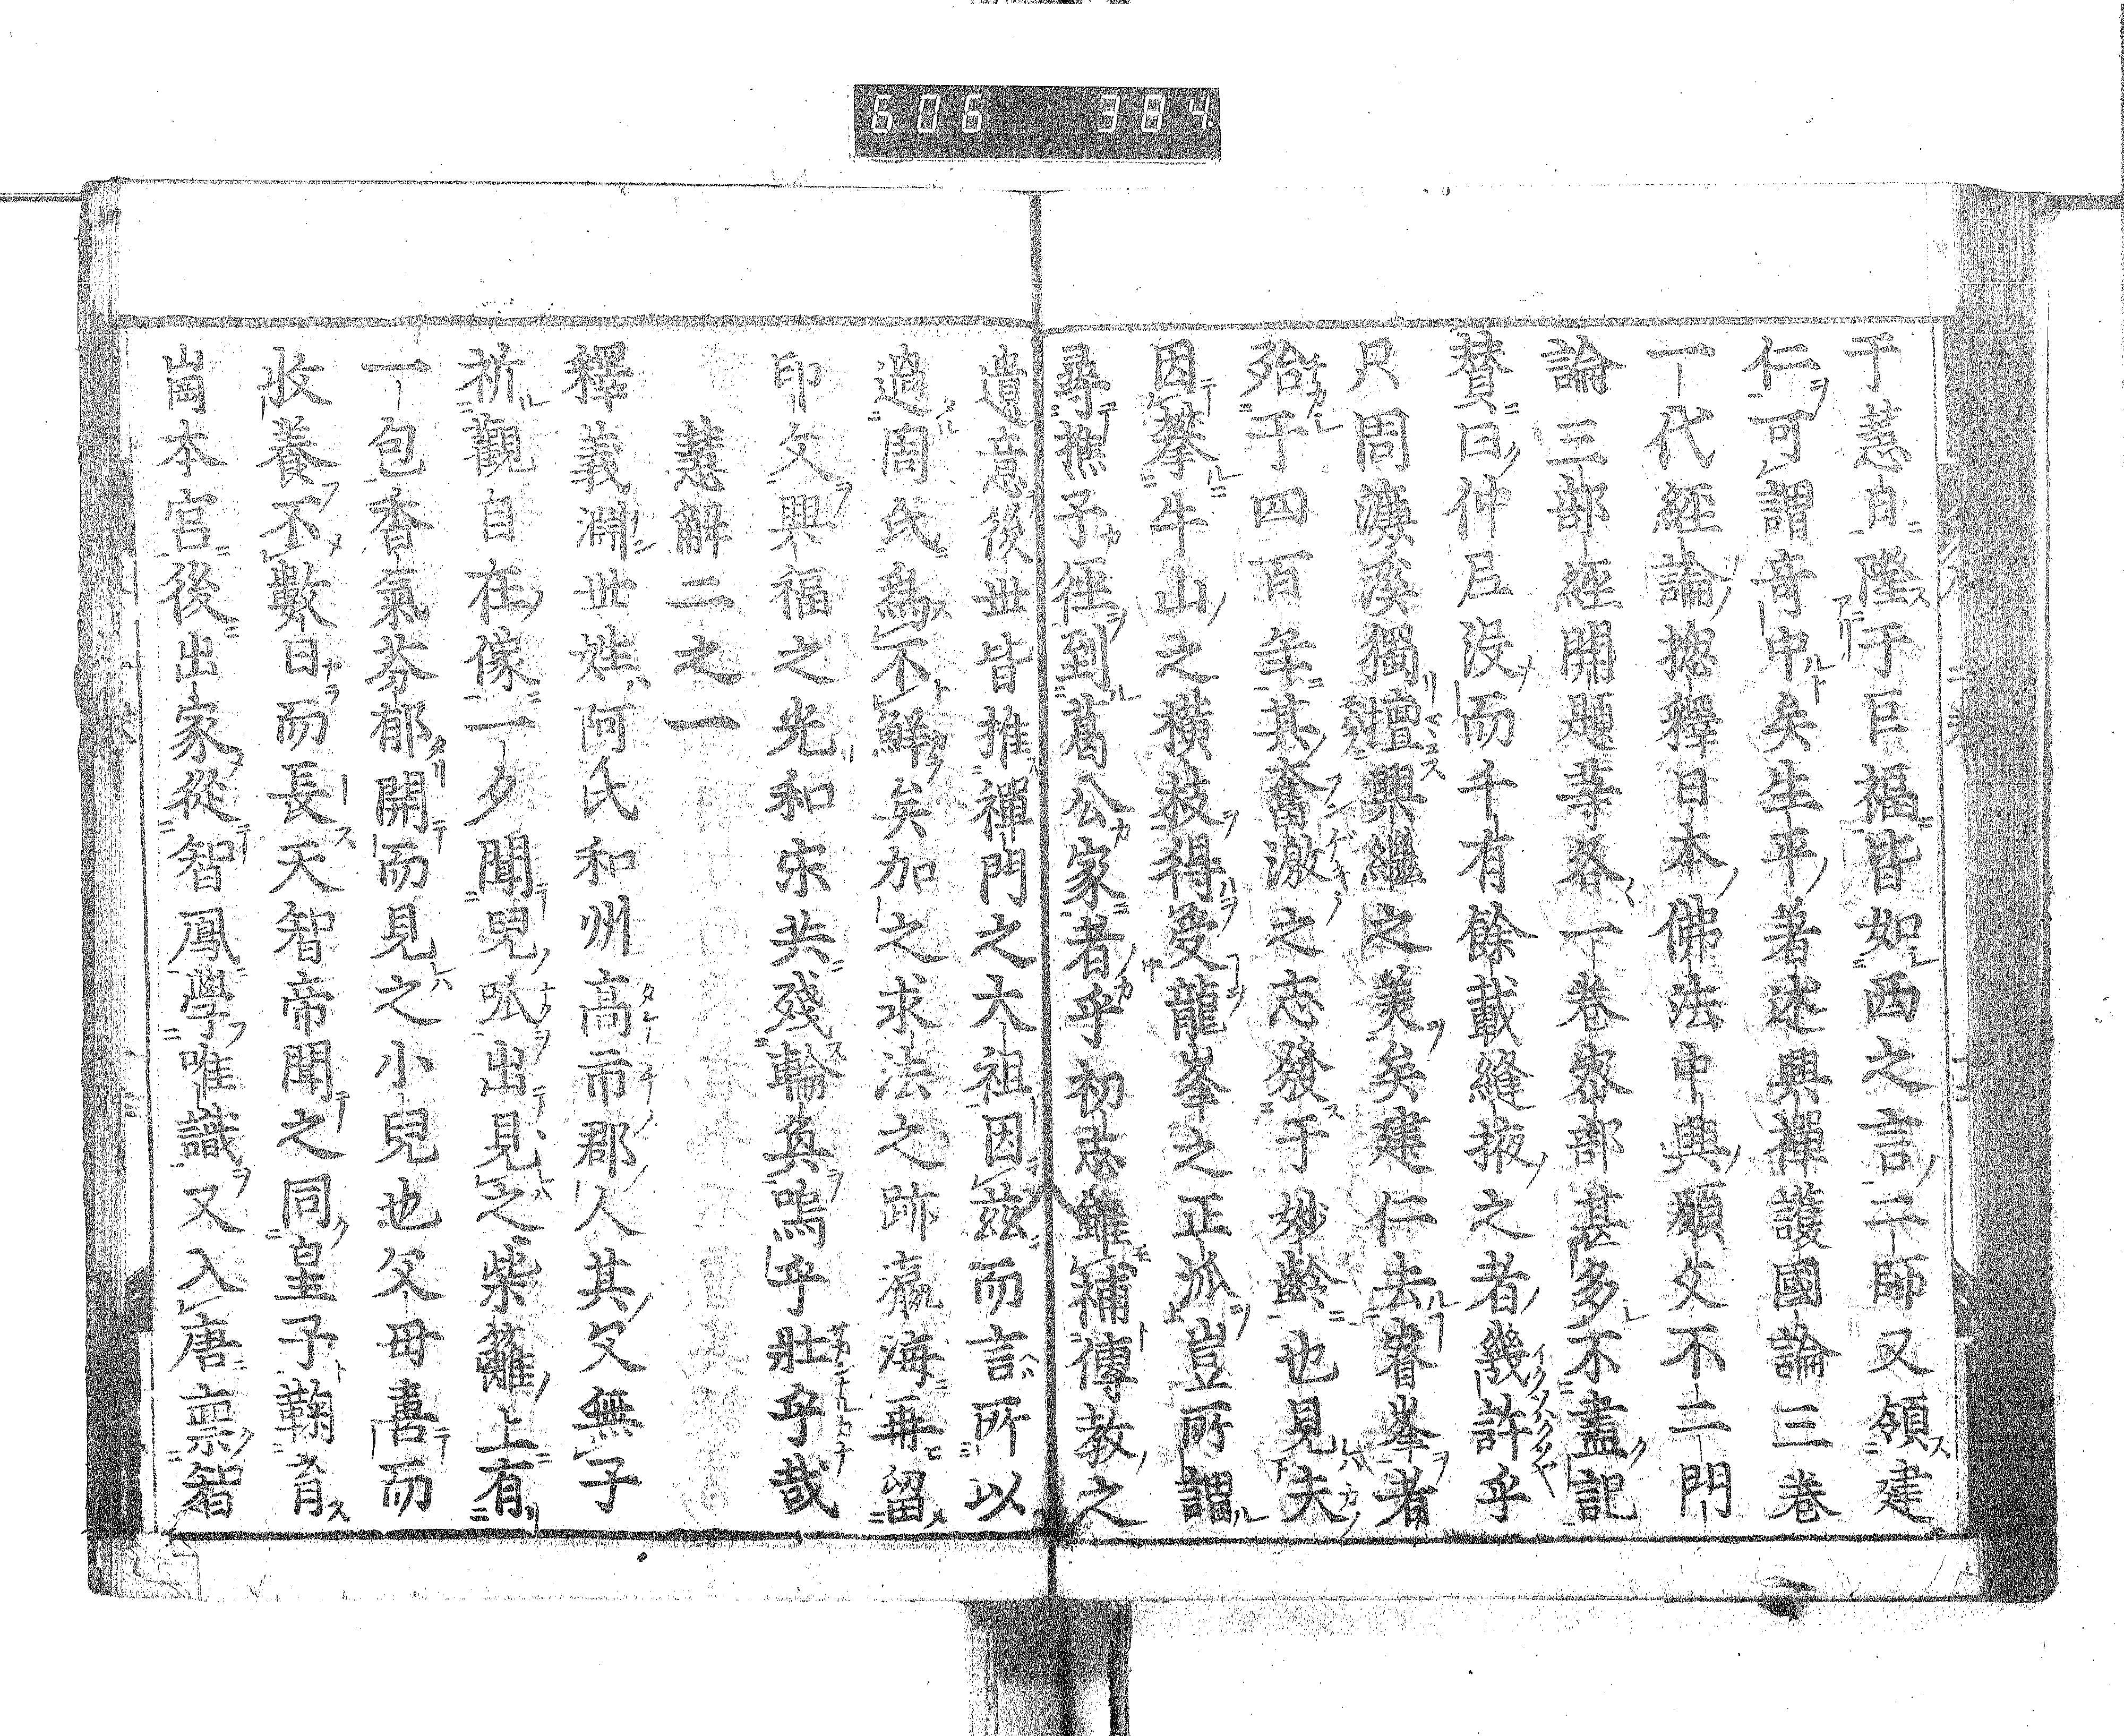 606 384
于慧自陞于巨福皆如西之言二師又領建
仁可謂音中矣生平著述興禪護國論三卷
一代經論揔釋日本佛法中興願文不二門
論三部經開題等各一卷密部甚多不盡記
賛曰仲尼没而千有餘載縫掖之者幾許乎
只周濂溪獨擅興繼之美矣建仁去睿峯者
殆于四百年其奮激之志發于妙齡也見夫
因攀牛山之横枝得受龍峯之正派豈所謂
尋樵子徑到葛公家者乎初志雖補傳教之
遺意後世皆推禪門之大祖因茲而言所以
過周氏為不鮮矣加之求法之跡瀛海再留
印文興福之光和宋共殘輪奐嗚乎壯乎哉
慧解二之一
釋義淵世姓阿氏和州高市郡人其父無子
祈觀自在像一夕聞兒呱出見之柴籬上有
一包香氣芬郁開而見之小兒也父母喜而
收養不數日而長天智帝聞之同皇子鞠育
崗本宮後出家從智鳳學唯識又入唐稟智